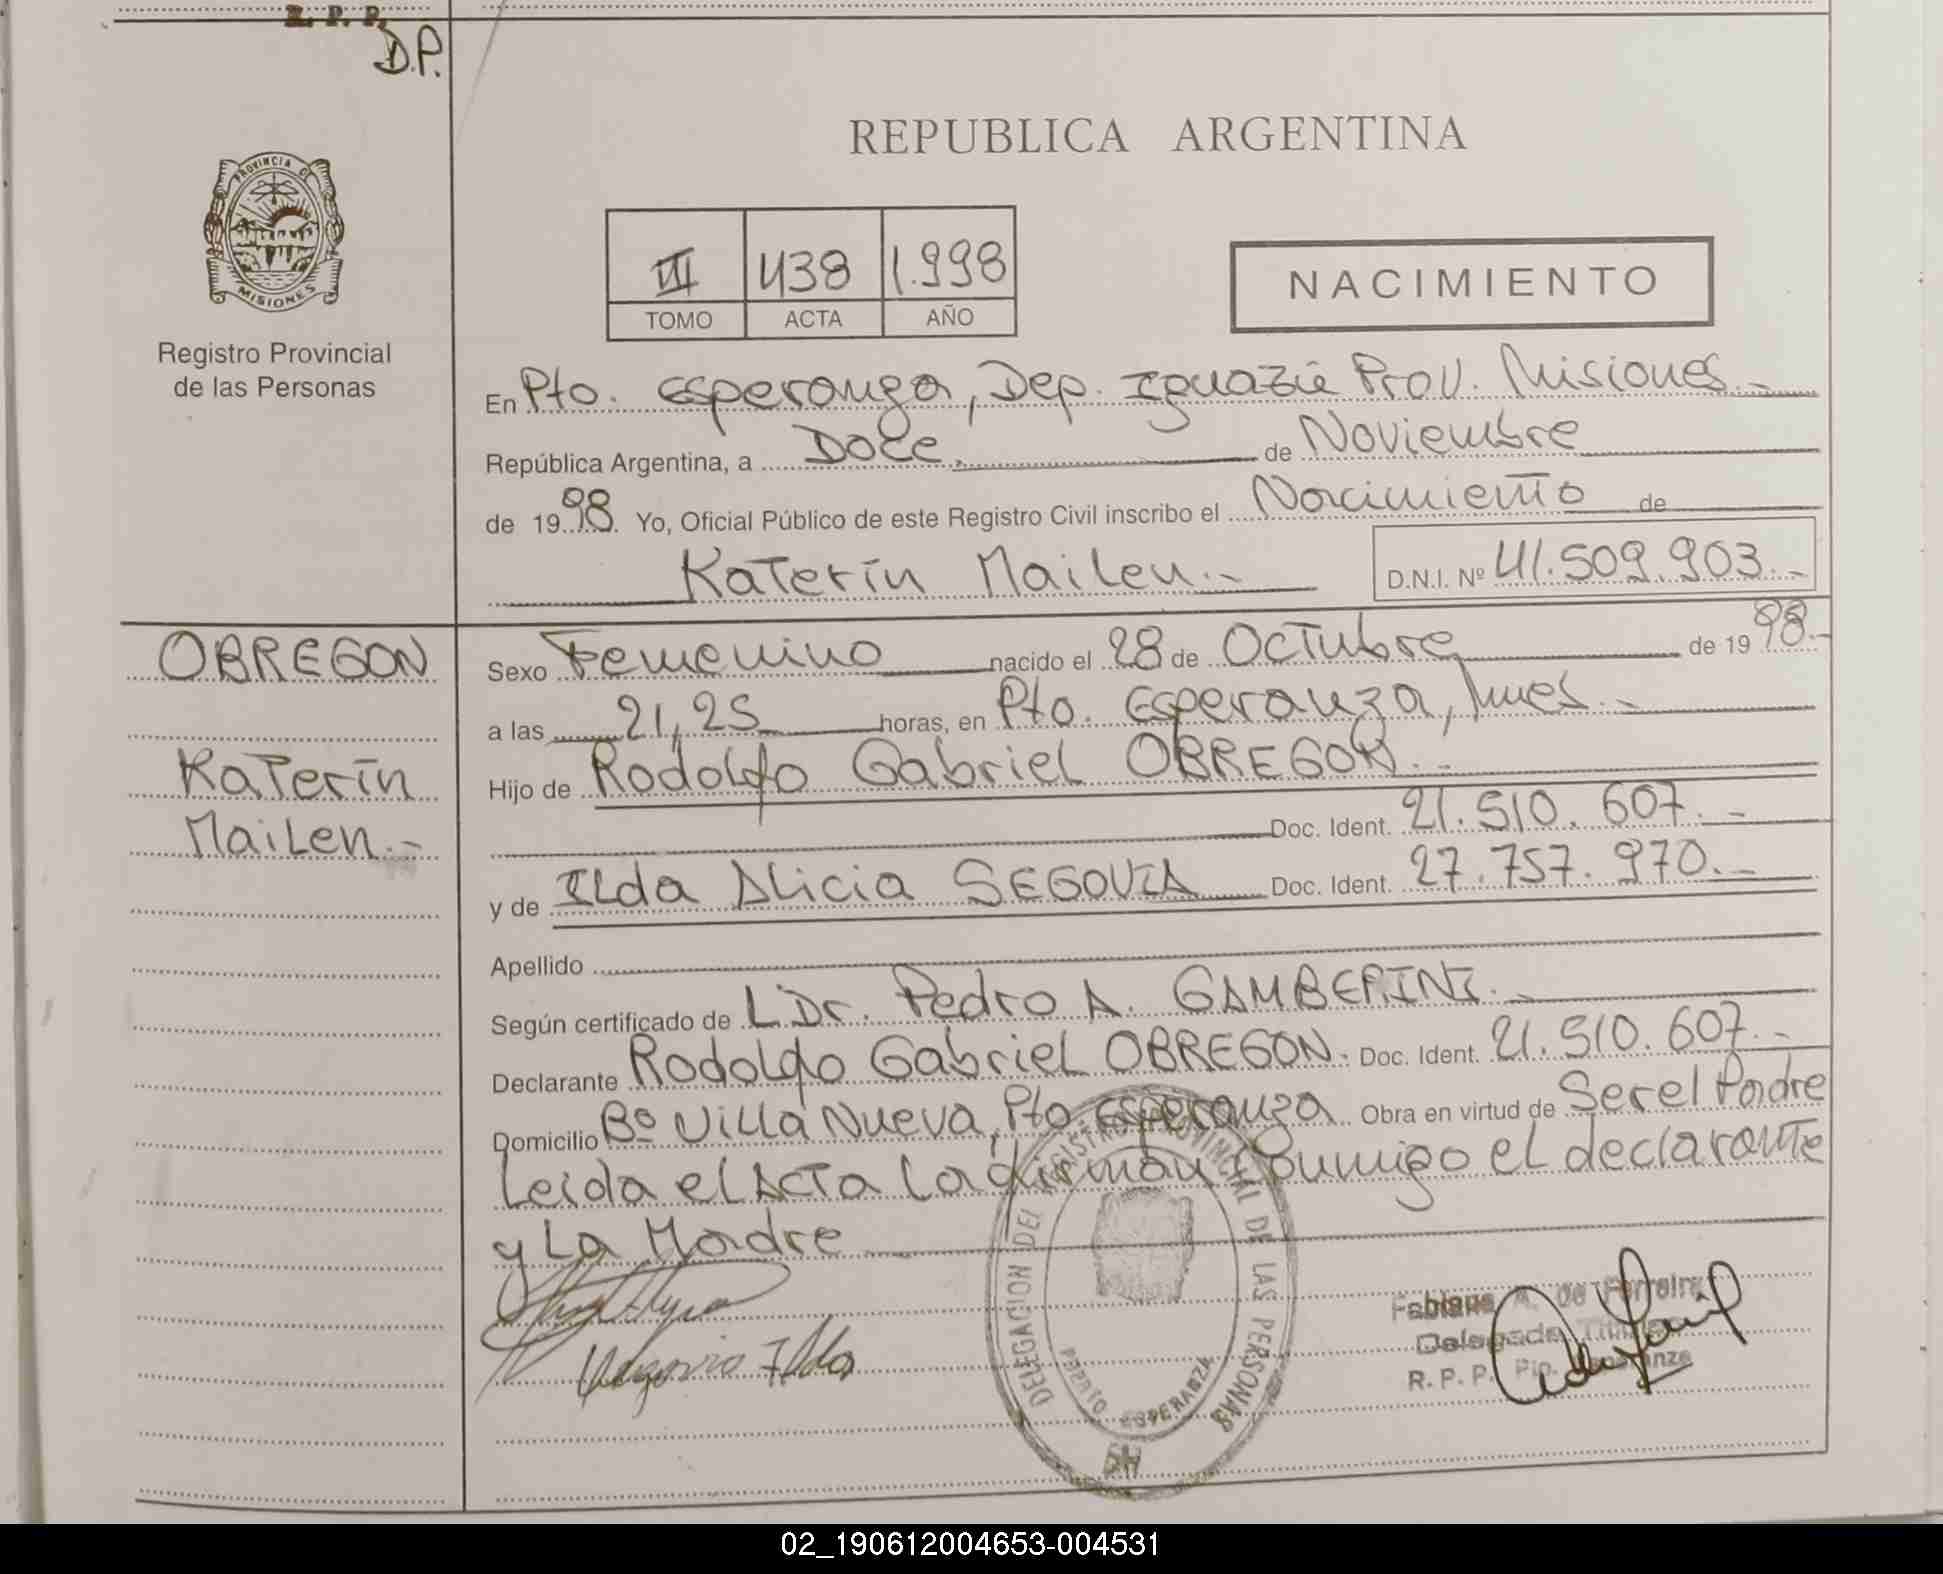 R. P. P.
D.P.
PROVINCIA DE
MISIONES
Registro Provincial
de las Personas
REPUBLICA ARGENTINA
III 438 1.998
TOMO ACTA AÑO
NACIMIENTO
En Pto. Esperanza, Dep. Iguazú Prov. Misiones.-
República Argentina, a Doce. de Noviembre
de 1998. Yo, Oficial Público de este Registro Civil inscribo el Nacimiento de
Katerin Mailen.- D.N.I. Nº 41.509.903.-
OBREGON
Katerin
Mailen.-
Sexo Femenino nacido el 28 de Octubre de 1998.-
a las 21,25 horas, en Pto. Esperanza, Mnes.-
Hijo de Rodolfo Gabriel OBREGON.-
Doc. Ident. 21.510.607.-
y de Ilda Alicia SEGOVIA Doc. Ident. 27.757.970.-
Apellido
Según certificado de L Dr. Pedro A. GAMBERINI.-
Declarante Rodolfo Gabriel OBREGON. Doc. Ident. 21.510.607.-
Domicilio Bº Villa Nueva, Pto Esperanza Obra en virtud de Ser el Padre
Leida el Acta la firman conmigo el declarante
y La Madre
Segovia Ilda
DELEGACION DEL REGISTRO PROVINCIAL DE LAS PERSONAS
PUERTO ESPERANZA
Fabiana A. de Ferreira
Delegada Titular
R. P. P. Pto. Esperanza
02_190612004653-004531